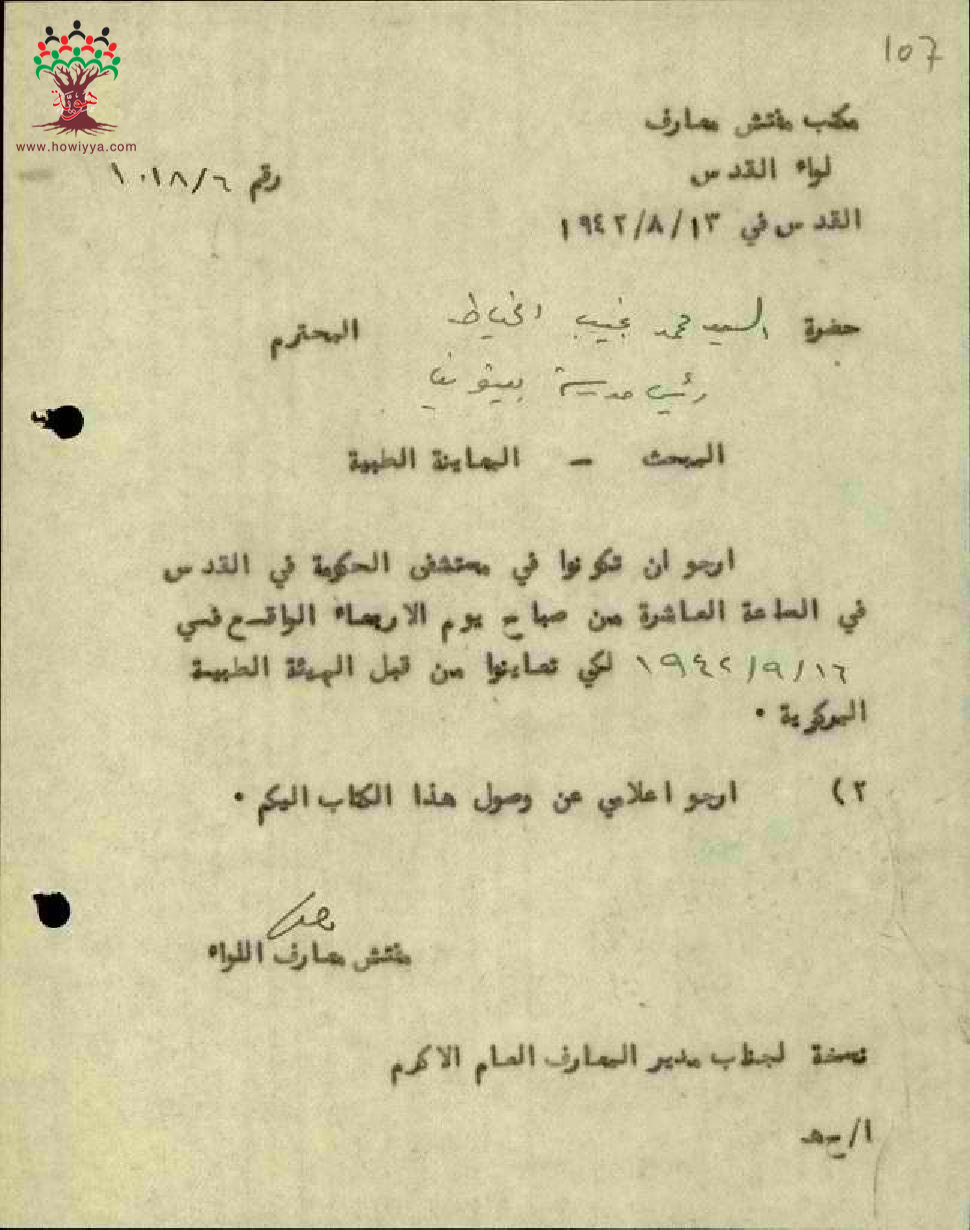 107
هوية
www.howiyya.com
مكتب مفتش معارف
لواء القدس
رقم ١٠١٨/٦
القدس في ١٩٤٢/٨/١٣
حضرة السيد محمد نجيب الخياط المحترم
رئيس مدرسة بيتونيا
المبحث - المعاينة الطبية
ارجو ان تكونوا في مستشفى الحكومة في القدس
في الساعة العاشرة من صباح يوم الاربعاء الواقع في
١٩٤٢/٩/١٦ لكي تعاينوا من قبل الهيئة الطبية
المركزية .
٢) ارجو اعلامي عن وصول هذا الكتاب اليكم .
مفتش معارف اللواء
نسخة لجناب مدير المعارف العام الاكرم
ا/حه